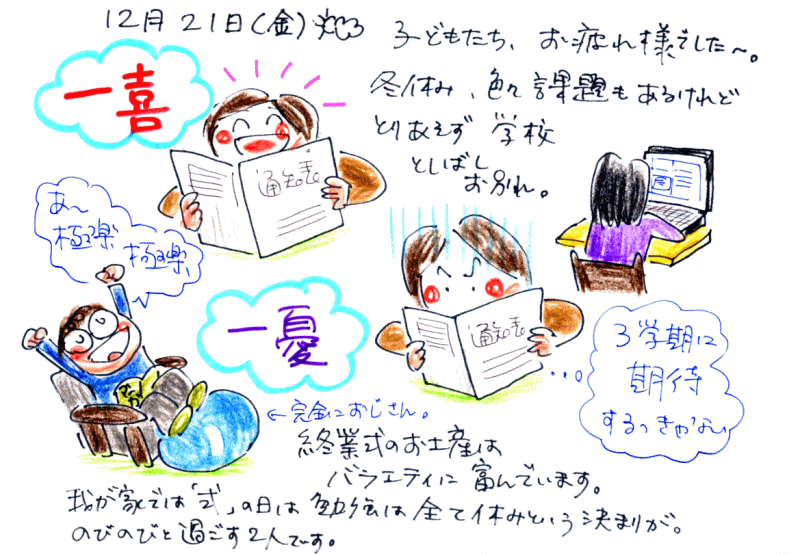 12月21日(金)
子どもたち、お疲れ様でした〜。
冬休み、色々課題もあるけれど
とりあえず 学校
としばし
お別れ。
一喜
通知表
あ〜
極楽
極楽、
一憂
通知表
3学期に
期待
するっきゃない
←完全におじさん。
終業式のお土産は
バラエティに富んでいます。
我が家では「式」の日は 勉強は全て休みという決まりが。
のびのびと過ごす2人です。